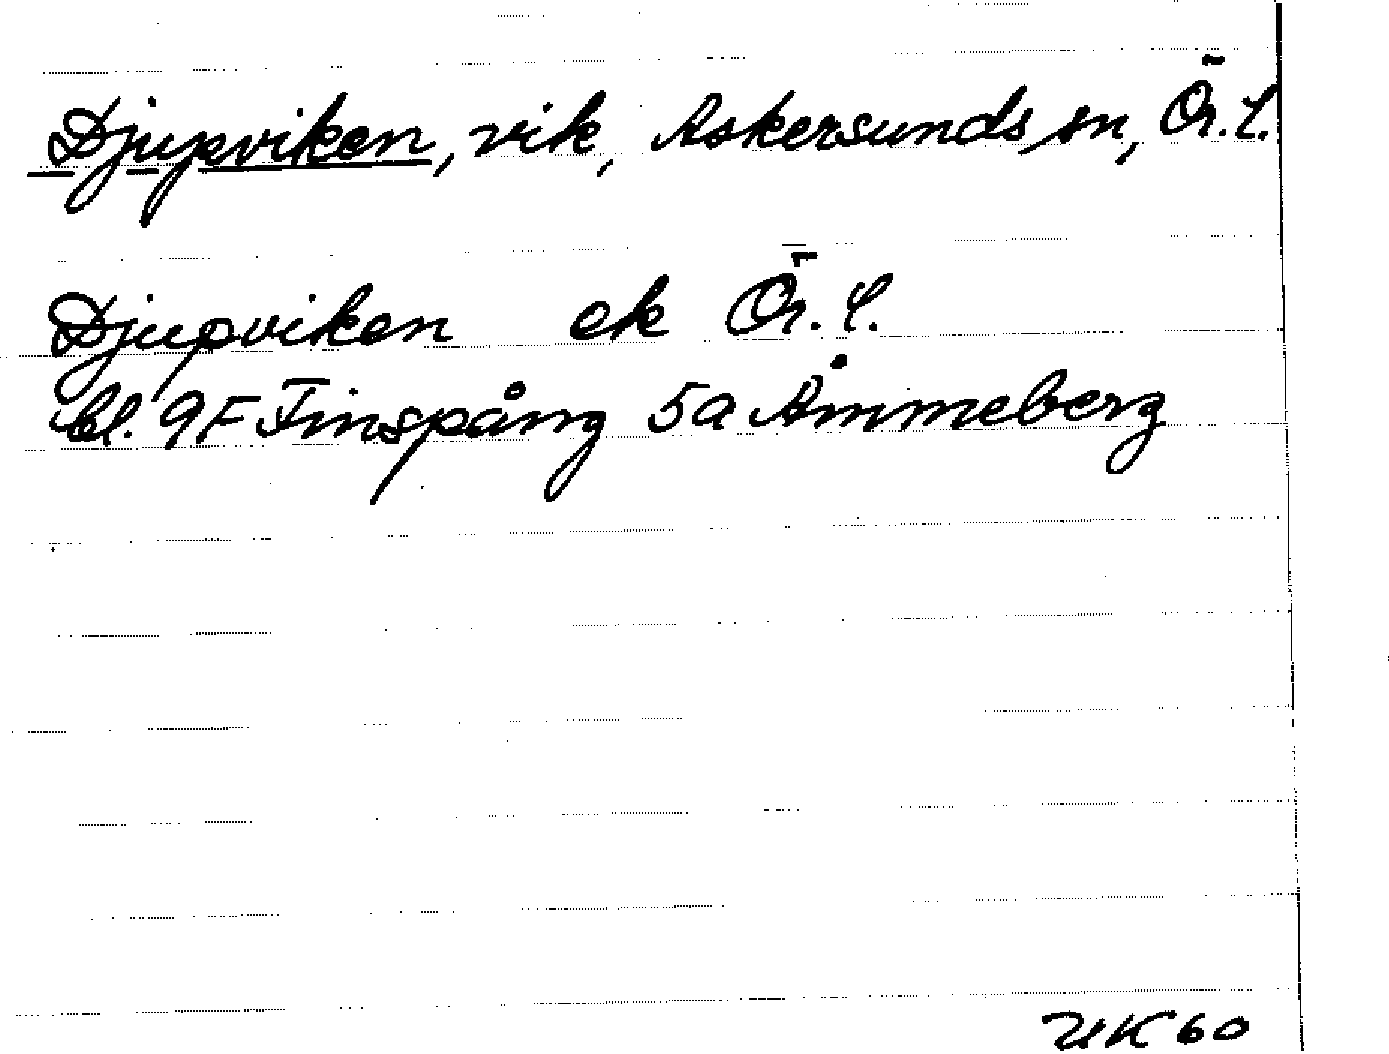 Djupviken, vik, Askersunds sn, Ör. l.
Djupviken ek Ör. l.
bl. 9F Finspång 5a Åmmeberg
UK 60